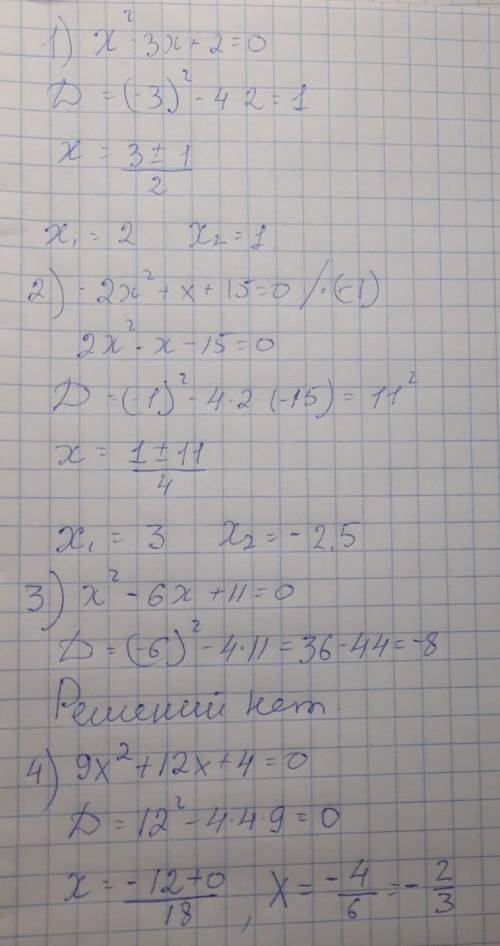 1) x² - 3x + 2 = 0
D = (-3)² - 4 2 = 1
x = (3 ± 1)/2
x₁ = 2 x₂ = 1
2) -2x² + x + 15 = 0 /·(-1)
2x² - x - 15 = 0
D = (-1)² - 4·2·(-15) = 11²
x = (1 ± 11)/4
x₁ = 3 x₂ = -2,5
3) x² - 6x + 11 = 0
D = (-6)² - 4·11 = 36 - 44 = -8
Решений нет.
4) 9x² + 12x + 4 = 0
D = 12² - 4·4·9 = 0
x = (-12+0)/18, x = -4/6 = -2/3